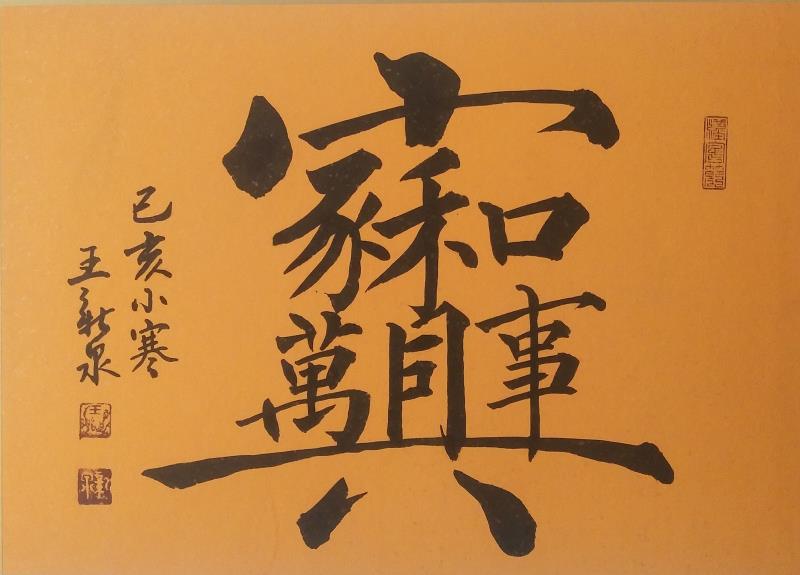 家和萬事興
己亥小寒
王新泉